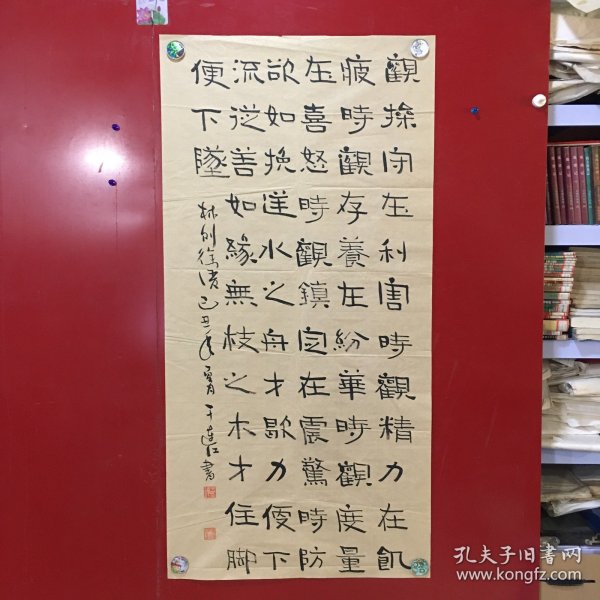 觀操守在利害時觀精力在飢
疲時觀存養在紛華時觀度量
在喜怒時觀鎮定在震驚時防
欲如挽逆水之舟才歇力便下
流從善如緣無枝之木才住脚
便下墜
林則徐語己丑年
書
孔夫子旧书网
www.kongfz.com